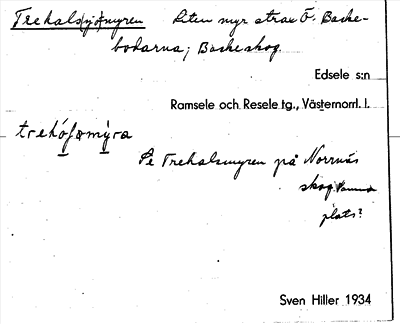 Trehalsmyren Liten myr strax Ö. Backe-
bodarna; Backe skog.
Edsele s:n
Ramsele och Resele tg., Västernorrl. l.
Se Trehalsmyren på Norrnäs
skog. Samma
plats?
Sven Hiller 1934